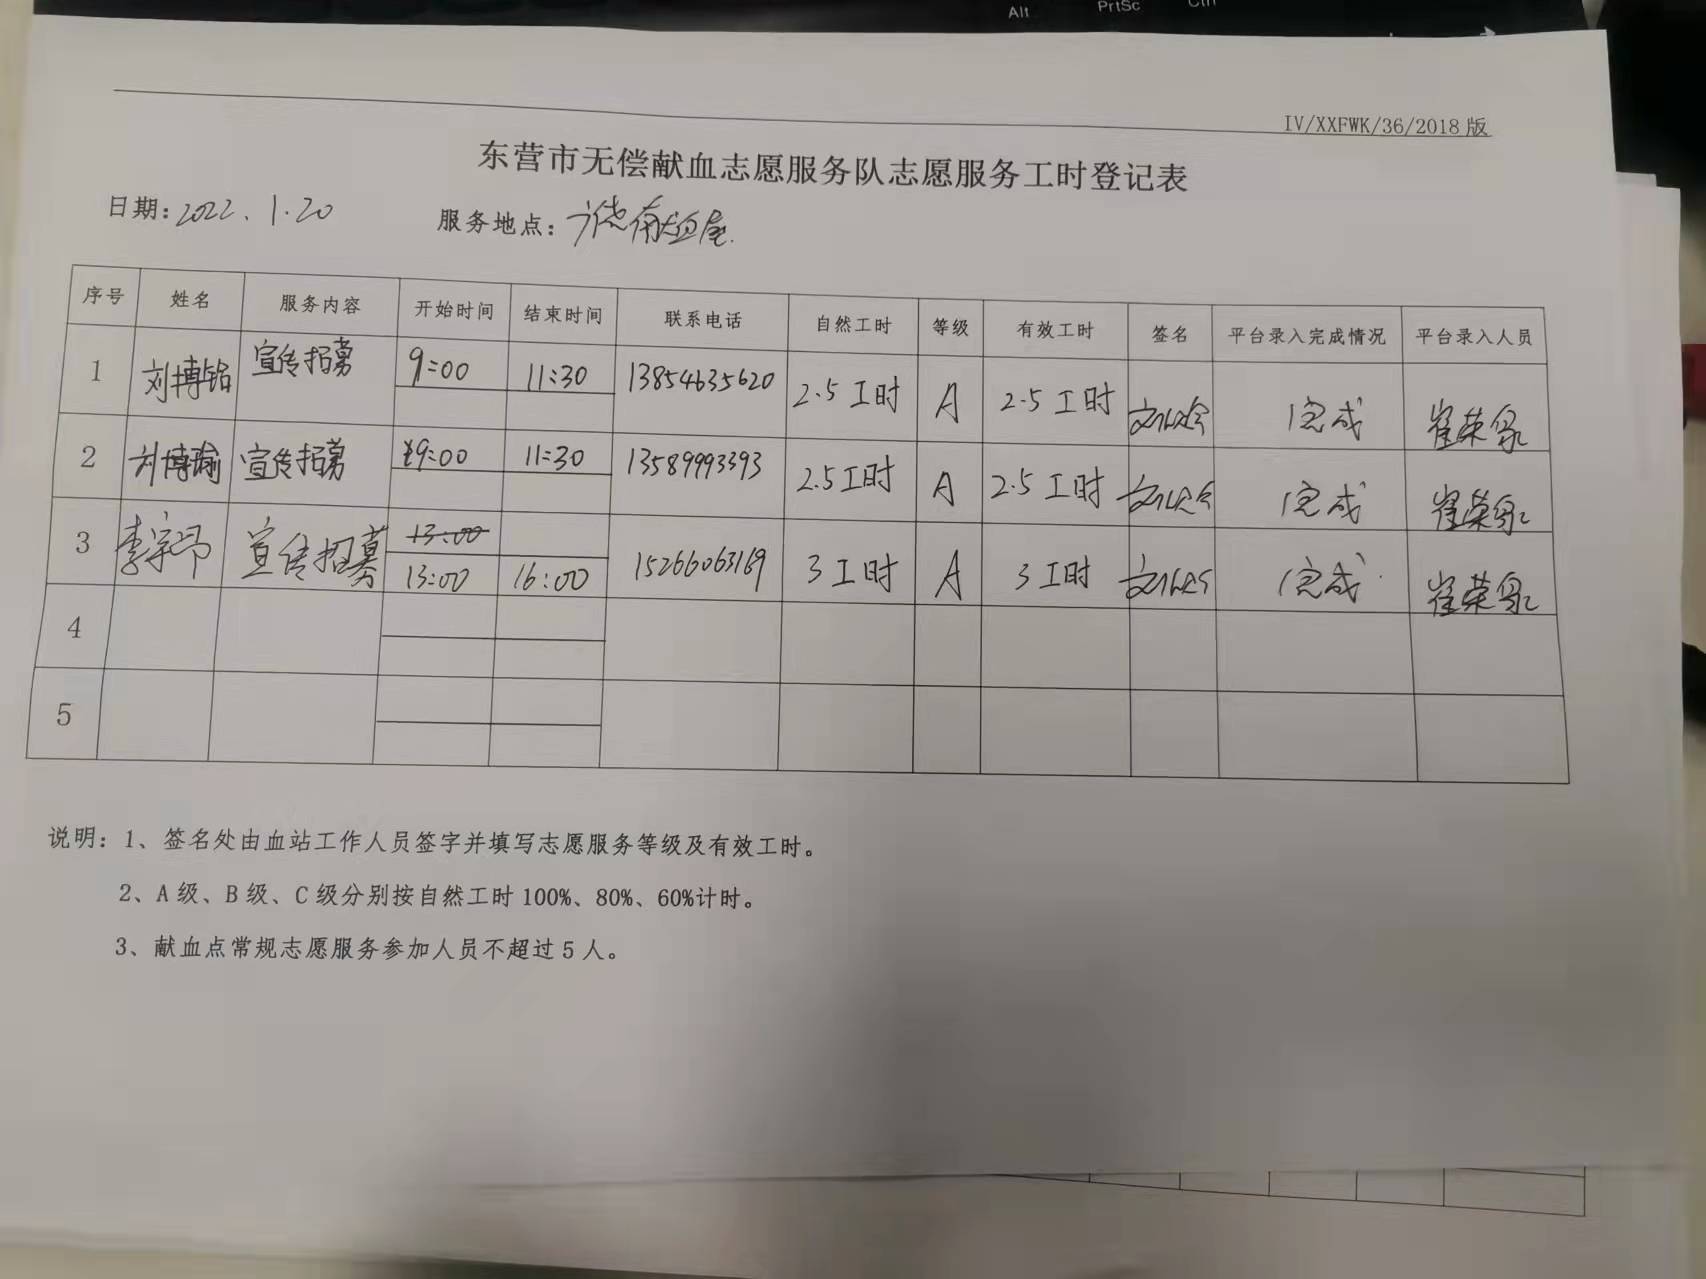 Alt PrtSc Ctrl
IV/XXFWK/36/2018 版
东营市无偿献血志愿服务队志愿服务工时登记表
日期: 2022.1.20 服务地点: 广饶献血屋.
序号 姓名 服务内容 开始时间 结束时间 联系电话 自然工时 等级 有效工时 签名 平台录入完成情况 平台录入人员
1 刘博铭 宣传招募 9:00 11:30 13854635620 2.5工时 A 2.5工时 完成 崔荣
2 刘博瑜 宣传招募 9:00 11:30 13589993393 2.5工时 A 2.5工时 完成 崔荣
3 李宇昂 宣传招募 13:00
13:00 16:00 15266063169 3工时 A 3工时 完成 崔荣
4
5
说明: 1、签名处由血站工作人员签字并填写志愿服务等级及有效工时。
2、A 级、B 级、C 级分别按自然工时 100%、80%、60%计时。
3、献血点常规志愿服务参加人员不超过 5 人。